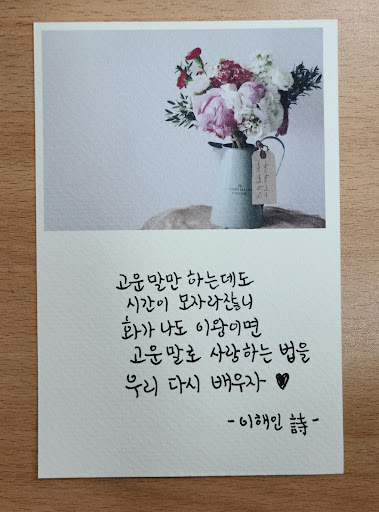 고운말만 하는데도
시간이 모자라잖니
화가 나도 이왕이면
고운말로 사랑하는 법을
우리 다시 배우자 ♥
- 이해인 詩 -